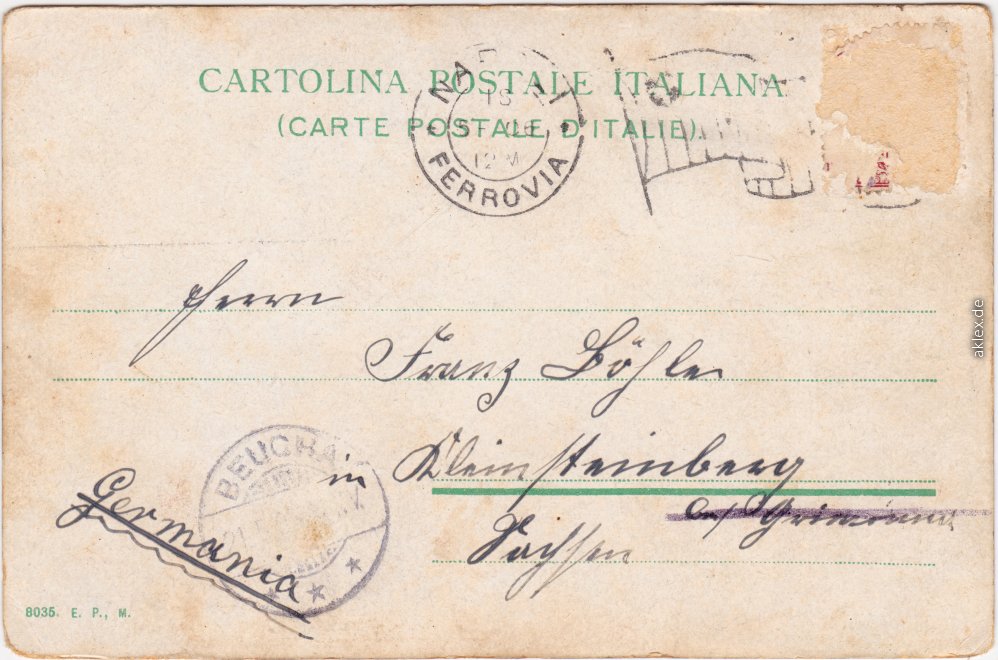 CARTOLINA POSTALE ITALIANA
(CARTE POSTALE D'ITALIE)
NAPOLI
12 M
FERROVIA
Herrn
Franz Böhle
in Kleinsteinberg
b/ Grimma
Sachsen
Germania
BEUCHA
8035. E. P., M.
aklex.de